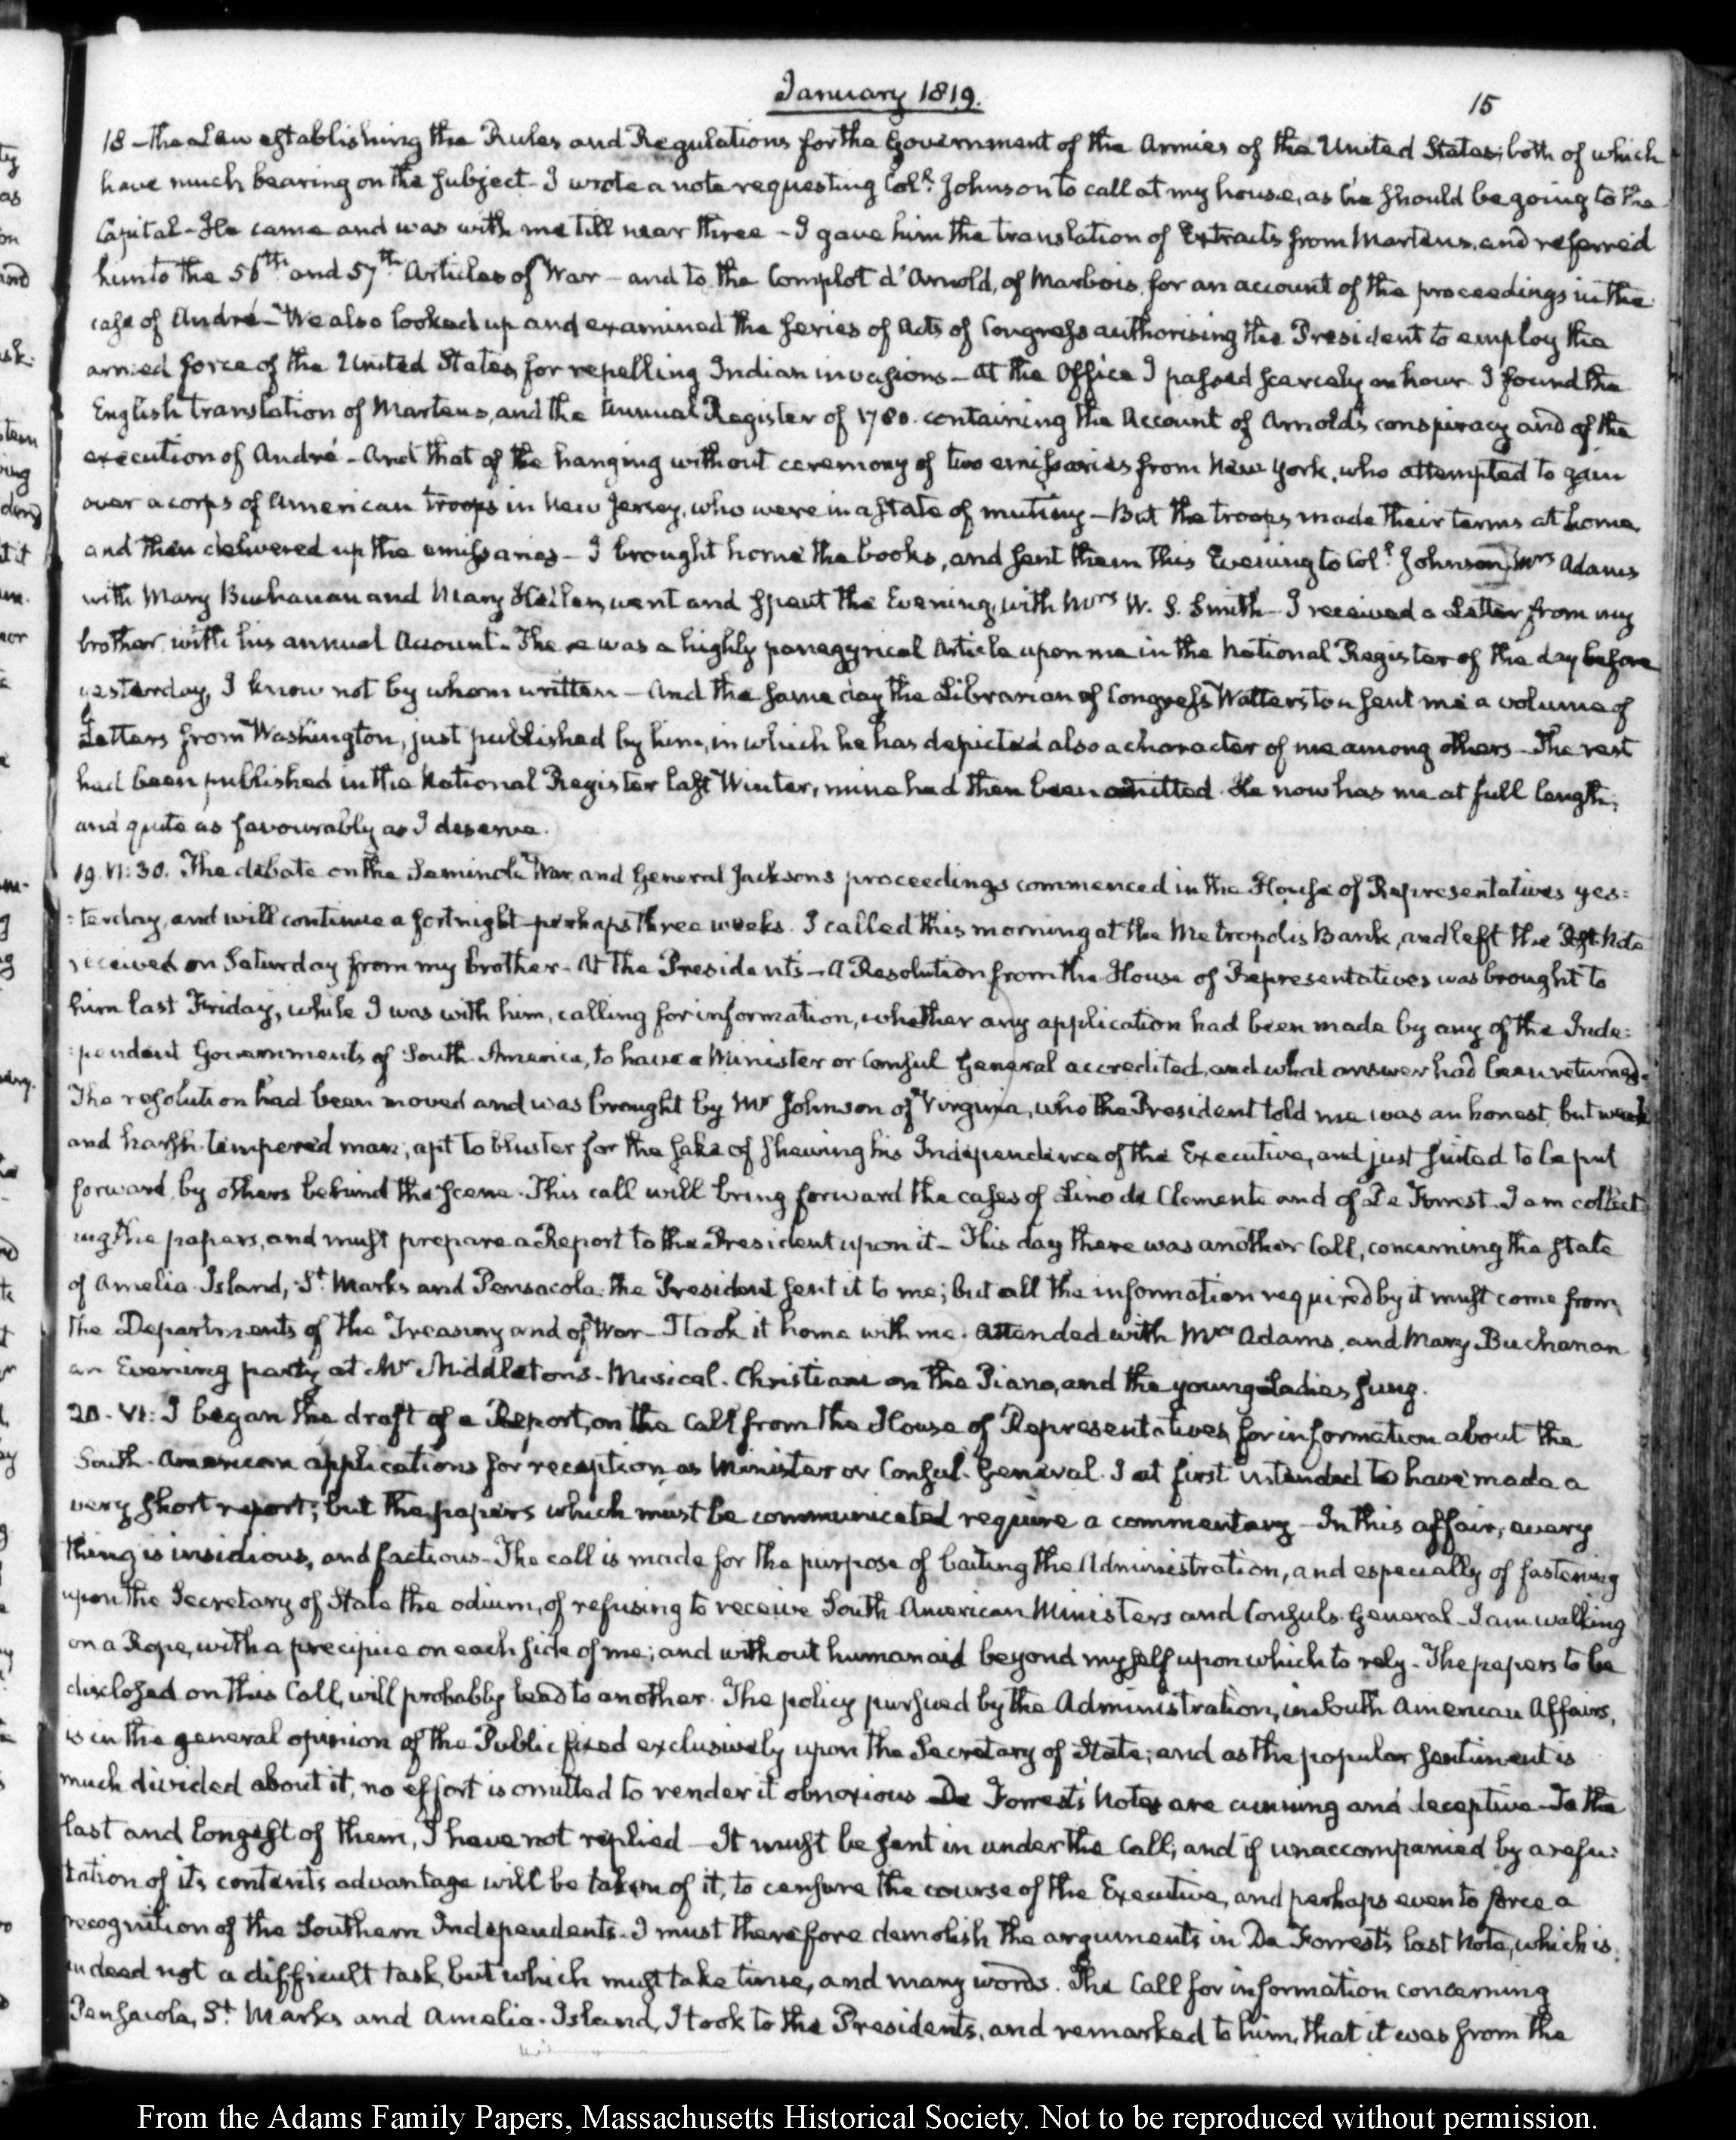 January 1819.
15
18 - the Law establishing the Rules and Regulations for the Government of the Armies of the United States; both of which
have much bearing on the subject - I wrote a note requesting Coll. Johnson to call at my house, as he should be going to the
Capitol - He came and was with me till near three - I gave him the translation of Extracts from Martens, and referred
him to the 56th and 57th Articles of War - and to the Complot d'Arnold, of Marbois, for an account of the proceedings in the
case of André - We also looked up and examined the series of Acts of Congress authorising the President to employ the
armed force of the United States, for repelling Indian invasions - At the Office I passed scarcely an hour I found the
English translation of Martens, and the Annual Register of 1780. containing the Account of Arnold's conspiracy and of the
execution of André - And that of the hanging without ceremony of two emissaries from New York, who attempted to gain
over a corps of American troops in New Jersey, who were in a state of mutiny - But the troops made their terms at home,
and then delivered up the emissaries - I brought home the books, and sent them this Evening to Coll. Johnson, Mrs Adams
with Mary Buchanan and Mary Hellen, went and spent the Evening, with Mrs W. S. Smith - I received a Letter from my
brother with his annual Account. There was a highly panegyrical Article upon me in the National Register of the day before
yesterday, I know not by whom written - And the same day the Librarian of Congress Watterston sent me a volume of
Letters from Washington, just published by him, in which he has depicted also a character of me among others - The rest
had been published in the National Register last Winter, mine had then been omitted. He now has me at full length,
and quite as favourably as I deserve.
19. VI:30. The debate on the Seminole War, and General Jacksons proceedings commenced in the House of Representatives yes:
:terday, and will continue a fortnight perhaps three weeks. I called this morning at the Metropolis Bank, and left the Post Note
received on Saturday from my brother - At the Presidents - A Resolution from the House of Representatives was brought to
him last Friday, while I was with him, calling for information, whether any application had been made by any of the Inde:
:pendent Governments of South America, to have a Minister or Consul General accredited, and what answer had been returned.
The resolution had been moved and was brought by Mr Johnson of Virginia, who the President told me was an honest, but weak
and harsh tempered man; apt to bluster for the sake of shewing his Independence of the Executive, and just suited to be put
forward, by others behind the scene. This call will bring forward the cases of Lino de Clemente and of De Forrest. I am collect
ing the papers, and must prepare a Report to the President upon it - This day there was another Call, concerning the state
of Amelia-Island, St Marks and Pensacola: the President sent it to me; but all the information required by it must come from
the Departments of the Treasury and of War - I took it home with me. Attended with Mrs Adams, and Mary Buchanan
an Evening party at Mr Middleton's. Musical. Christiani on the Piano, and the young Ladies sung.
20. VI: I began the draft of a Report, on the Call from the House of Representatives, for information about the
South-American applications for reception, as Minister or Consul-General. I at first intended to have made a
very short report; but the papers which must be communicated require a commentary - In this affair, every
thing is insidious, and factious - The call is made for the purpose of baiting the Administration, and especially of fastening
upon the Secretary of State the odium, of refusing to receive South American Ministers and Consuls General - I am walking
on a Rope, with a precipice on each side of me; and without human aid beyond myself upon which to rely - The papers to be
disclosed on this Call, will probably lead to another. The policy pursued by the Administration, in South American Affairs,
is in the general opinion of the Public fixed exclusively upon the Secretary of State; and as the popular sentiment is
much divided about it, no effort is omitted to render it obnoxious De Forrest's Notes are cunning and deceptive - To the
last and longest of them, I have not replied - It must be sent in under the Call, and if unaccompanied by a refu:
tation of its contents advantage will be taken of it, to censure the course of the Executive, and perhaps even to force a
recognition of the Southern Independents. I must therefore demolish the arguments in De Forrest's last Note, which is
indeed not a difficult task, but which must take time, and many words. The Call for information concerning
Pensacola, St Marks and Amelia-Island, I took to the Presidents, and remarked to him, that it was from the
From the Adams Family Papers, Massachusetts Historical Society. Not to be reproduced without permission.